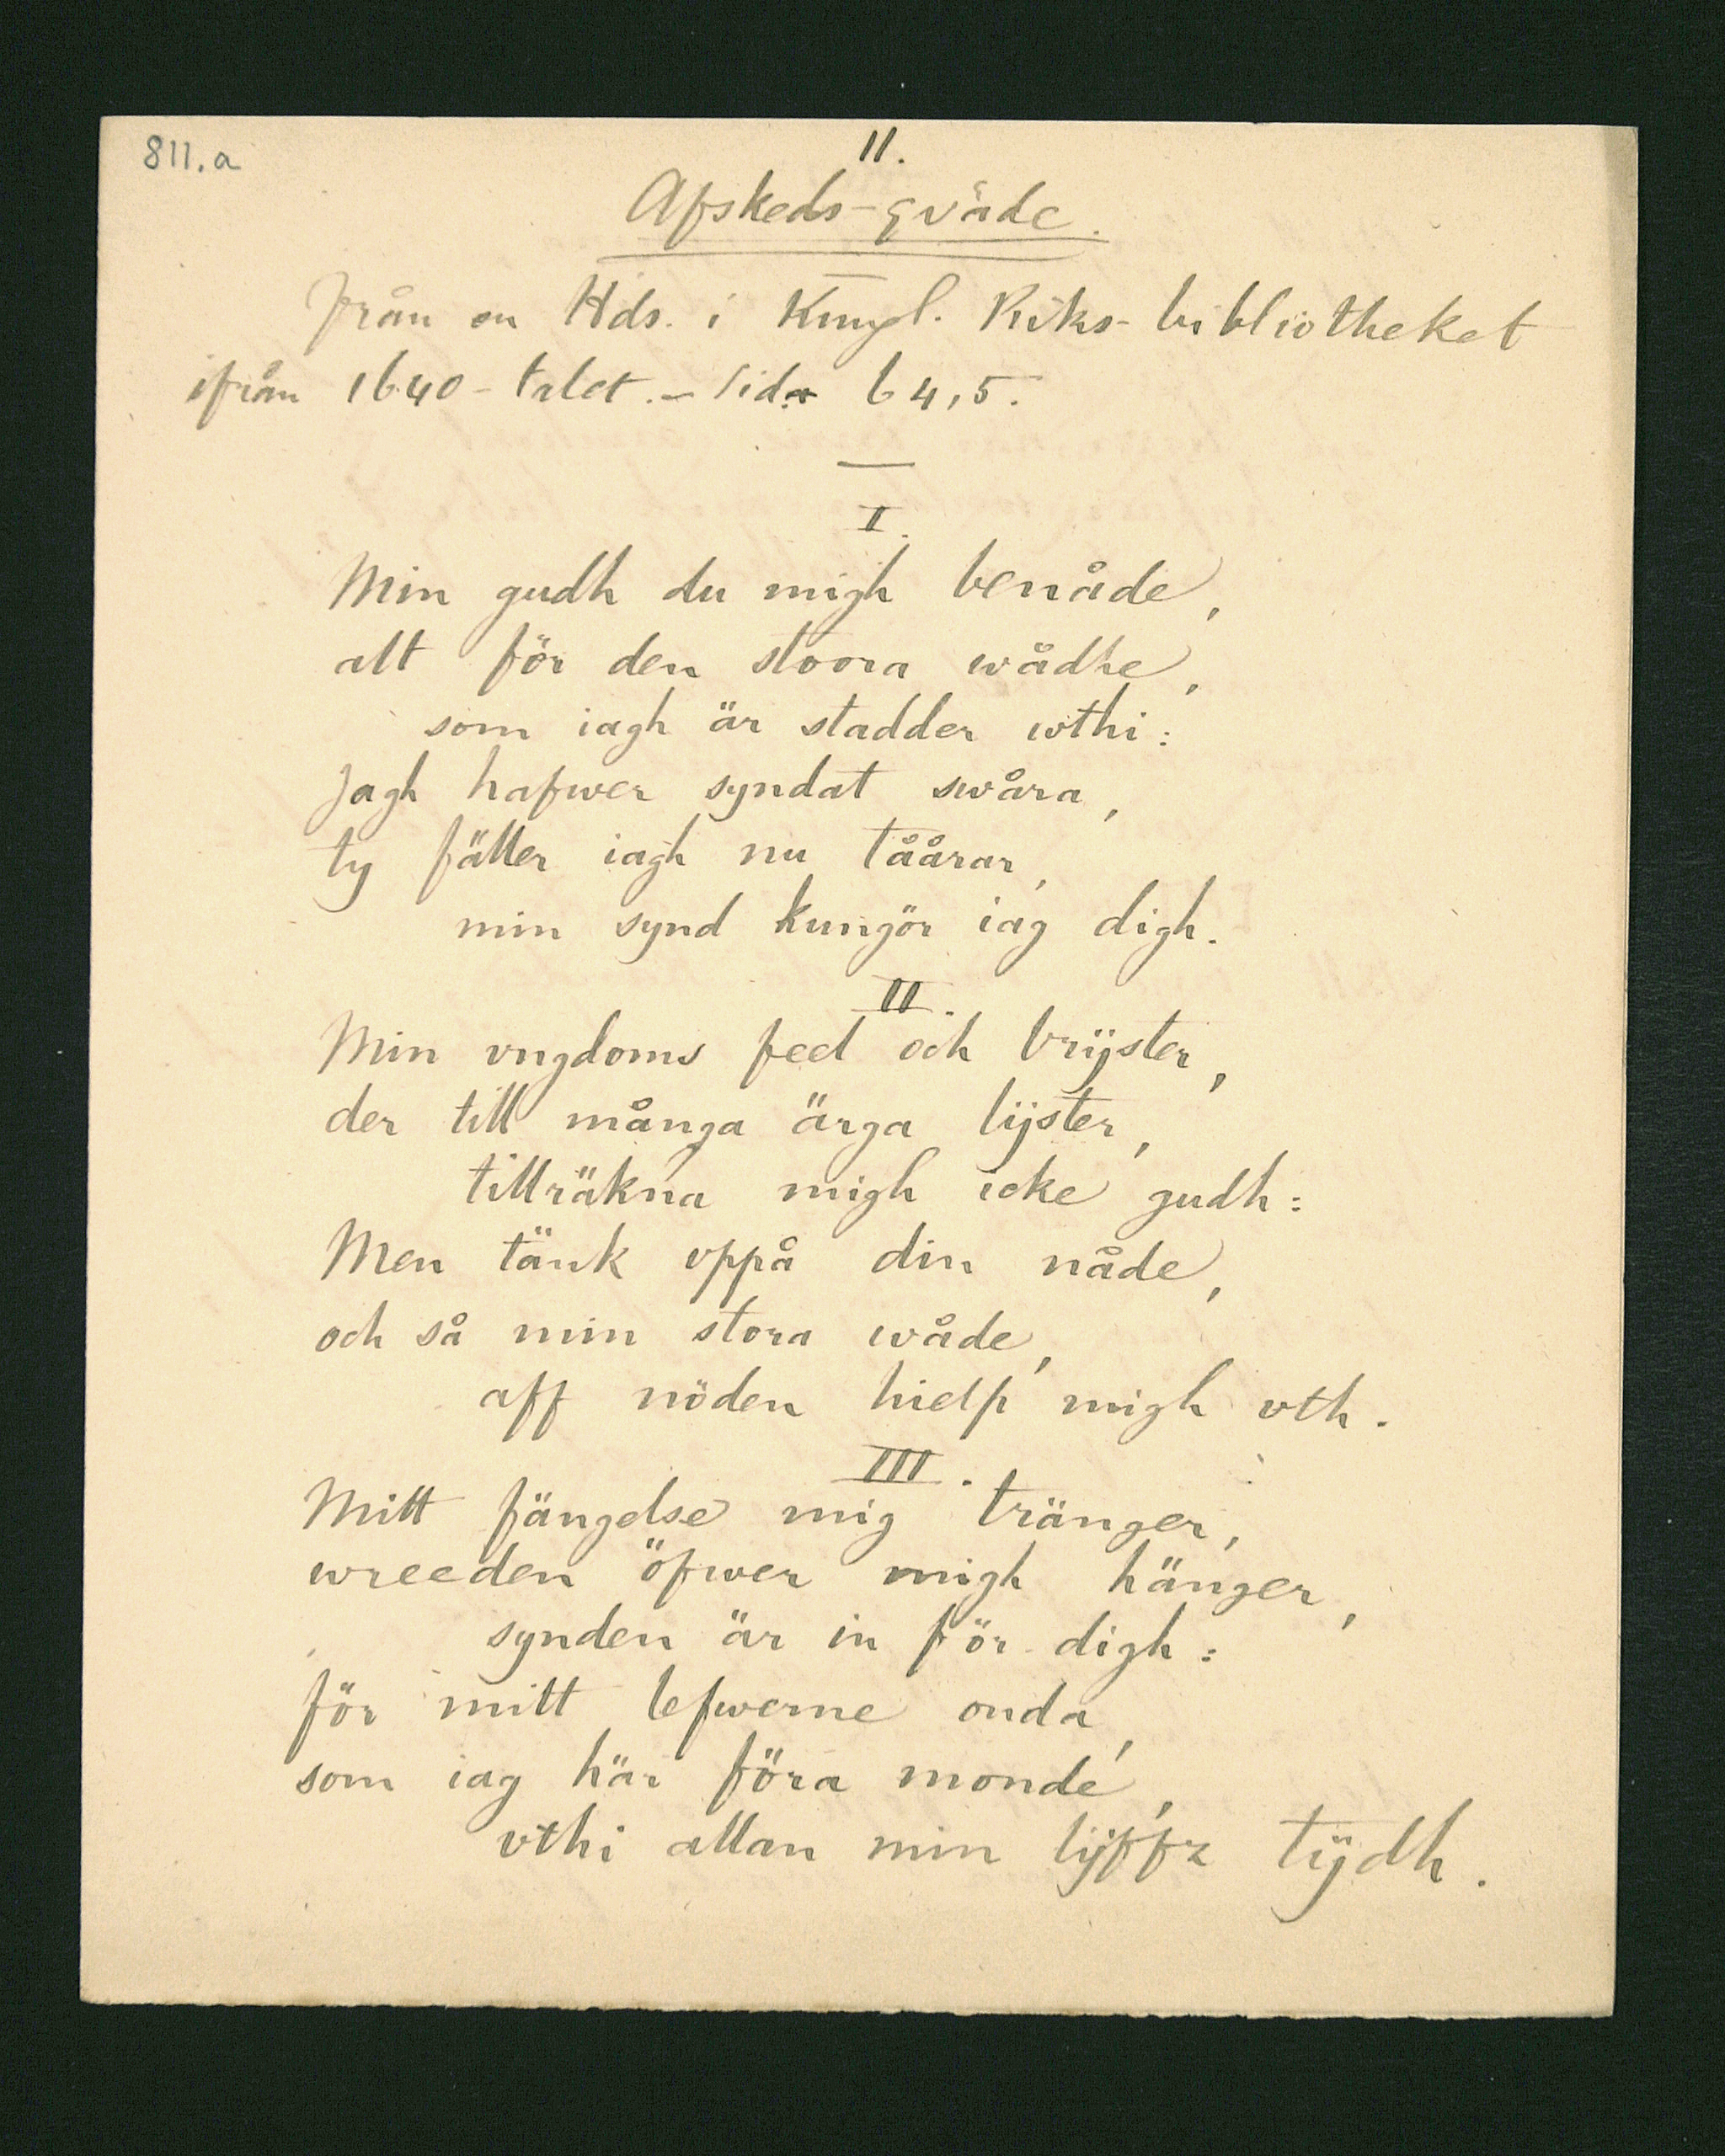 811.a
11.
Afskeds-qväde.
från en Hds. i Kungl. Riks-bibliotheket
ifrån 1640-talet. - Sid. 64,5.
I.
Min gudh du migh benåde,
alt för den stoora wådhe,
som iagh är stadder wthi:
Jagh hafwer syndat swåra,
ty fäller iagh nu tåårar,
min synd kungör iag digh.
II.
Min vngdoms feel och brijster,
der till många ärga lijster,
tillräkna migh icke gudh:
Men tänk vppå din nåde,
och så min stora wåde,
aff nöden hielp migh vth.
III.
Mitt fängelse mig tränger,
wreeden öfwer migh hänger,
synden är in för digh:
för mitt lefwerne onda,
som iag här föra monde,
vthi allan min lijffz tijdh.